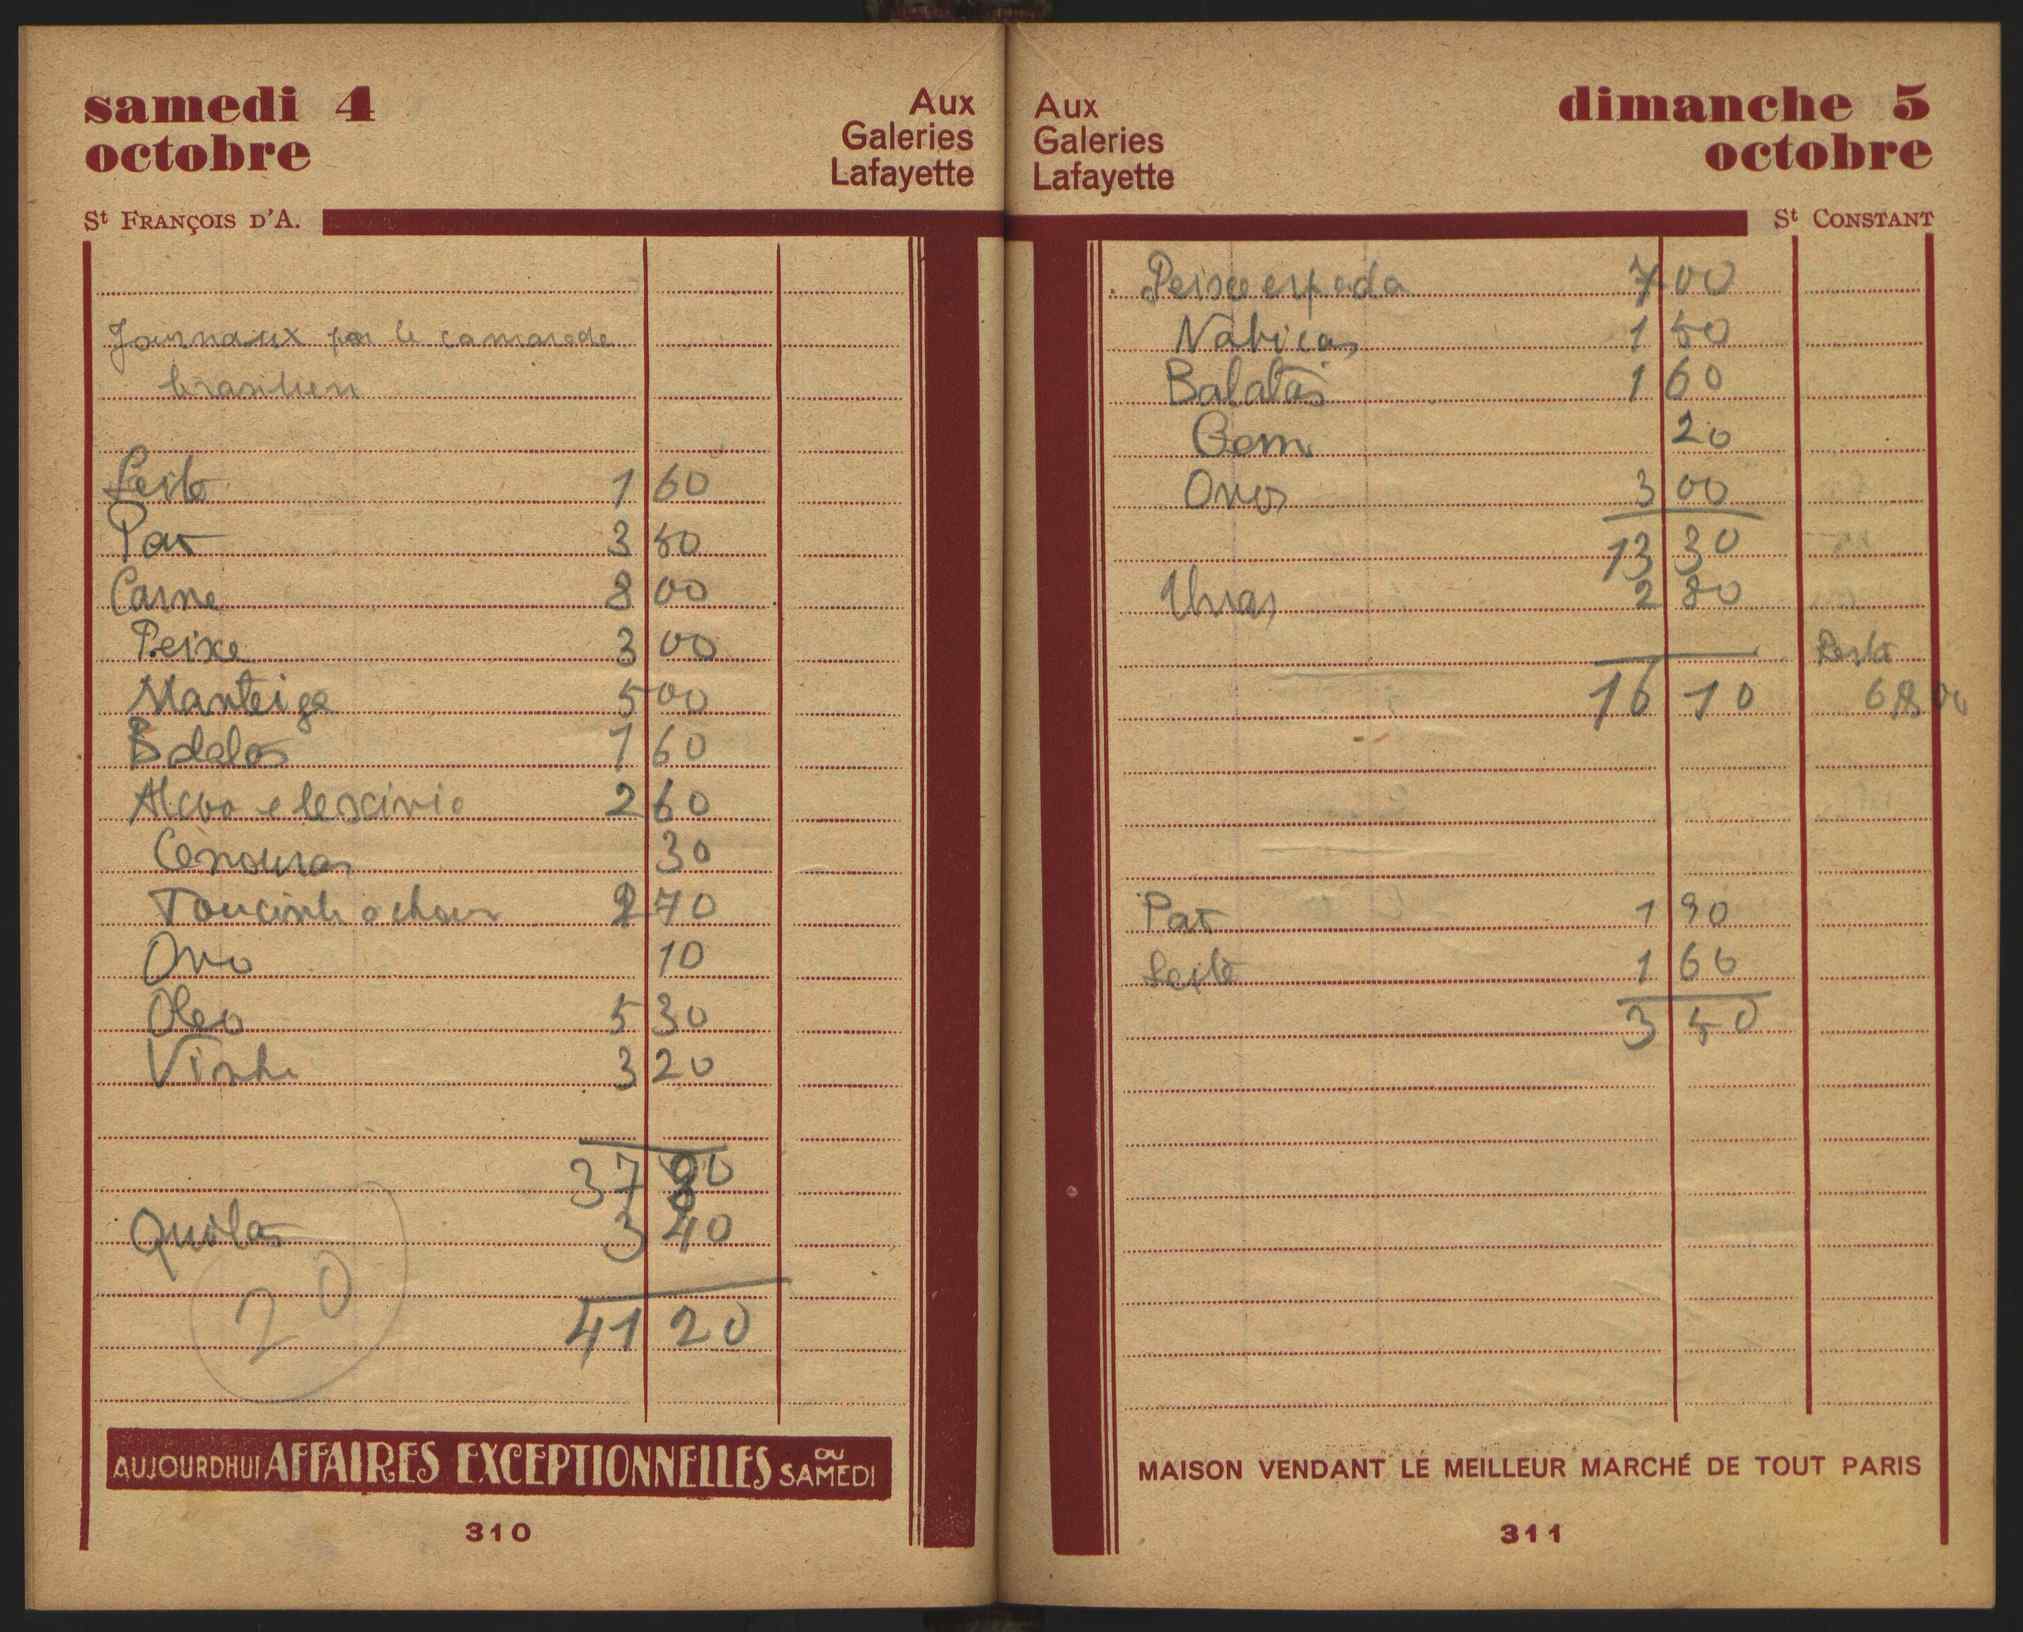 samedi 4
octobre
Aux
Galeries
Lafayette
St FRANÇOIS D'A.
Journaux par le camarade
brasilien
Leite 1 60
Pao 3 50
Carne 8 00
Peixe 3 00
Manteiga 5 00
Batatas 1 60
Alcool e lescivie 2 60
Cenouras 30
Toucinho 2 70
Ovo 10
Oleo 5 30
Vinho 3 20
37 80
3 40
20
41 20
AUJOURDHUI AFFAIRES EXCEPTIONNELLES OU SAMEDI
310
Aux
Galeries
Lafayette
dimanche 5
octobre
St CONSTANT
Peixe espada 7 00
Nabiças 1 50
Batatas 1 60
20
Ovos 3 00
13 30
Uvas 2 80
Resta
16 10
Pao 1 80
Leite 1 60
3 40
MAISON VENDANT LE MEILLEUR MARCHÉ DE TOUT PARIS
311